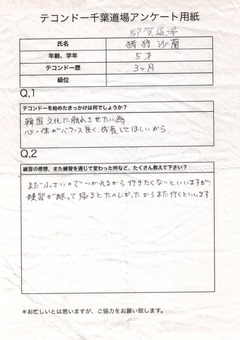 テコンドー千葉道場アンケート用紙
氏名
年齢、学年
5才
テコンドー歴
3ヶ月
級位
Q,1
テコンドーを始めたきっかけは何でしょうか？
韓国文化に触れさせたい為
心・体がバランス良く成長してほしいから
Q,2
練習の感想、また練習を通じて変わった所など、たくさん教えて下さい？
まだ小さいのでつかれるから行きたくないといいますが
練習が終って帰るとたのしかったからまた行くといいます
＊お忙しいとは思いますが、ご協力をお願い致します。